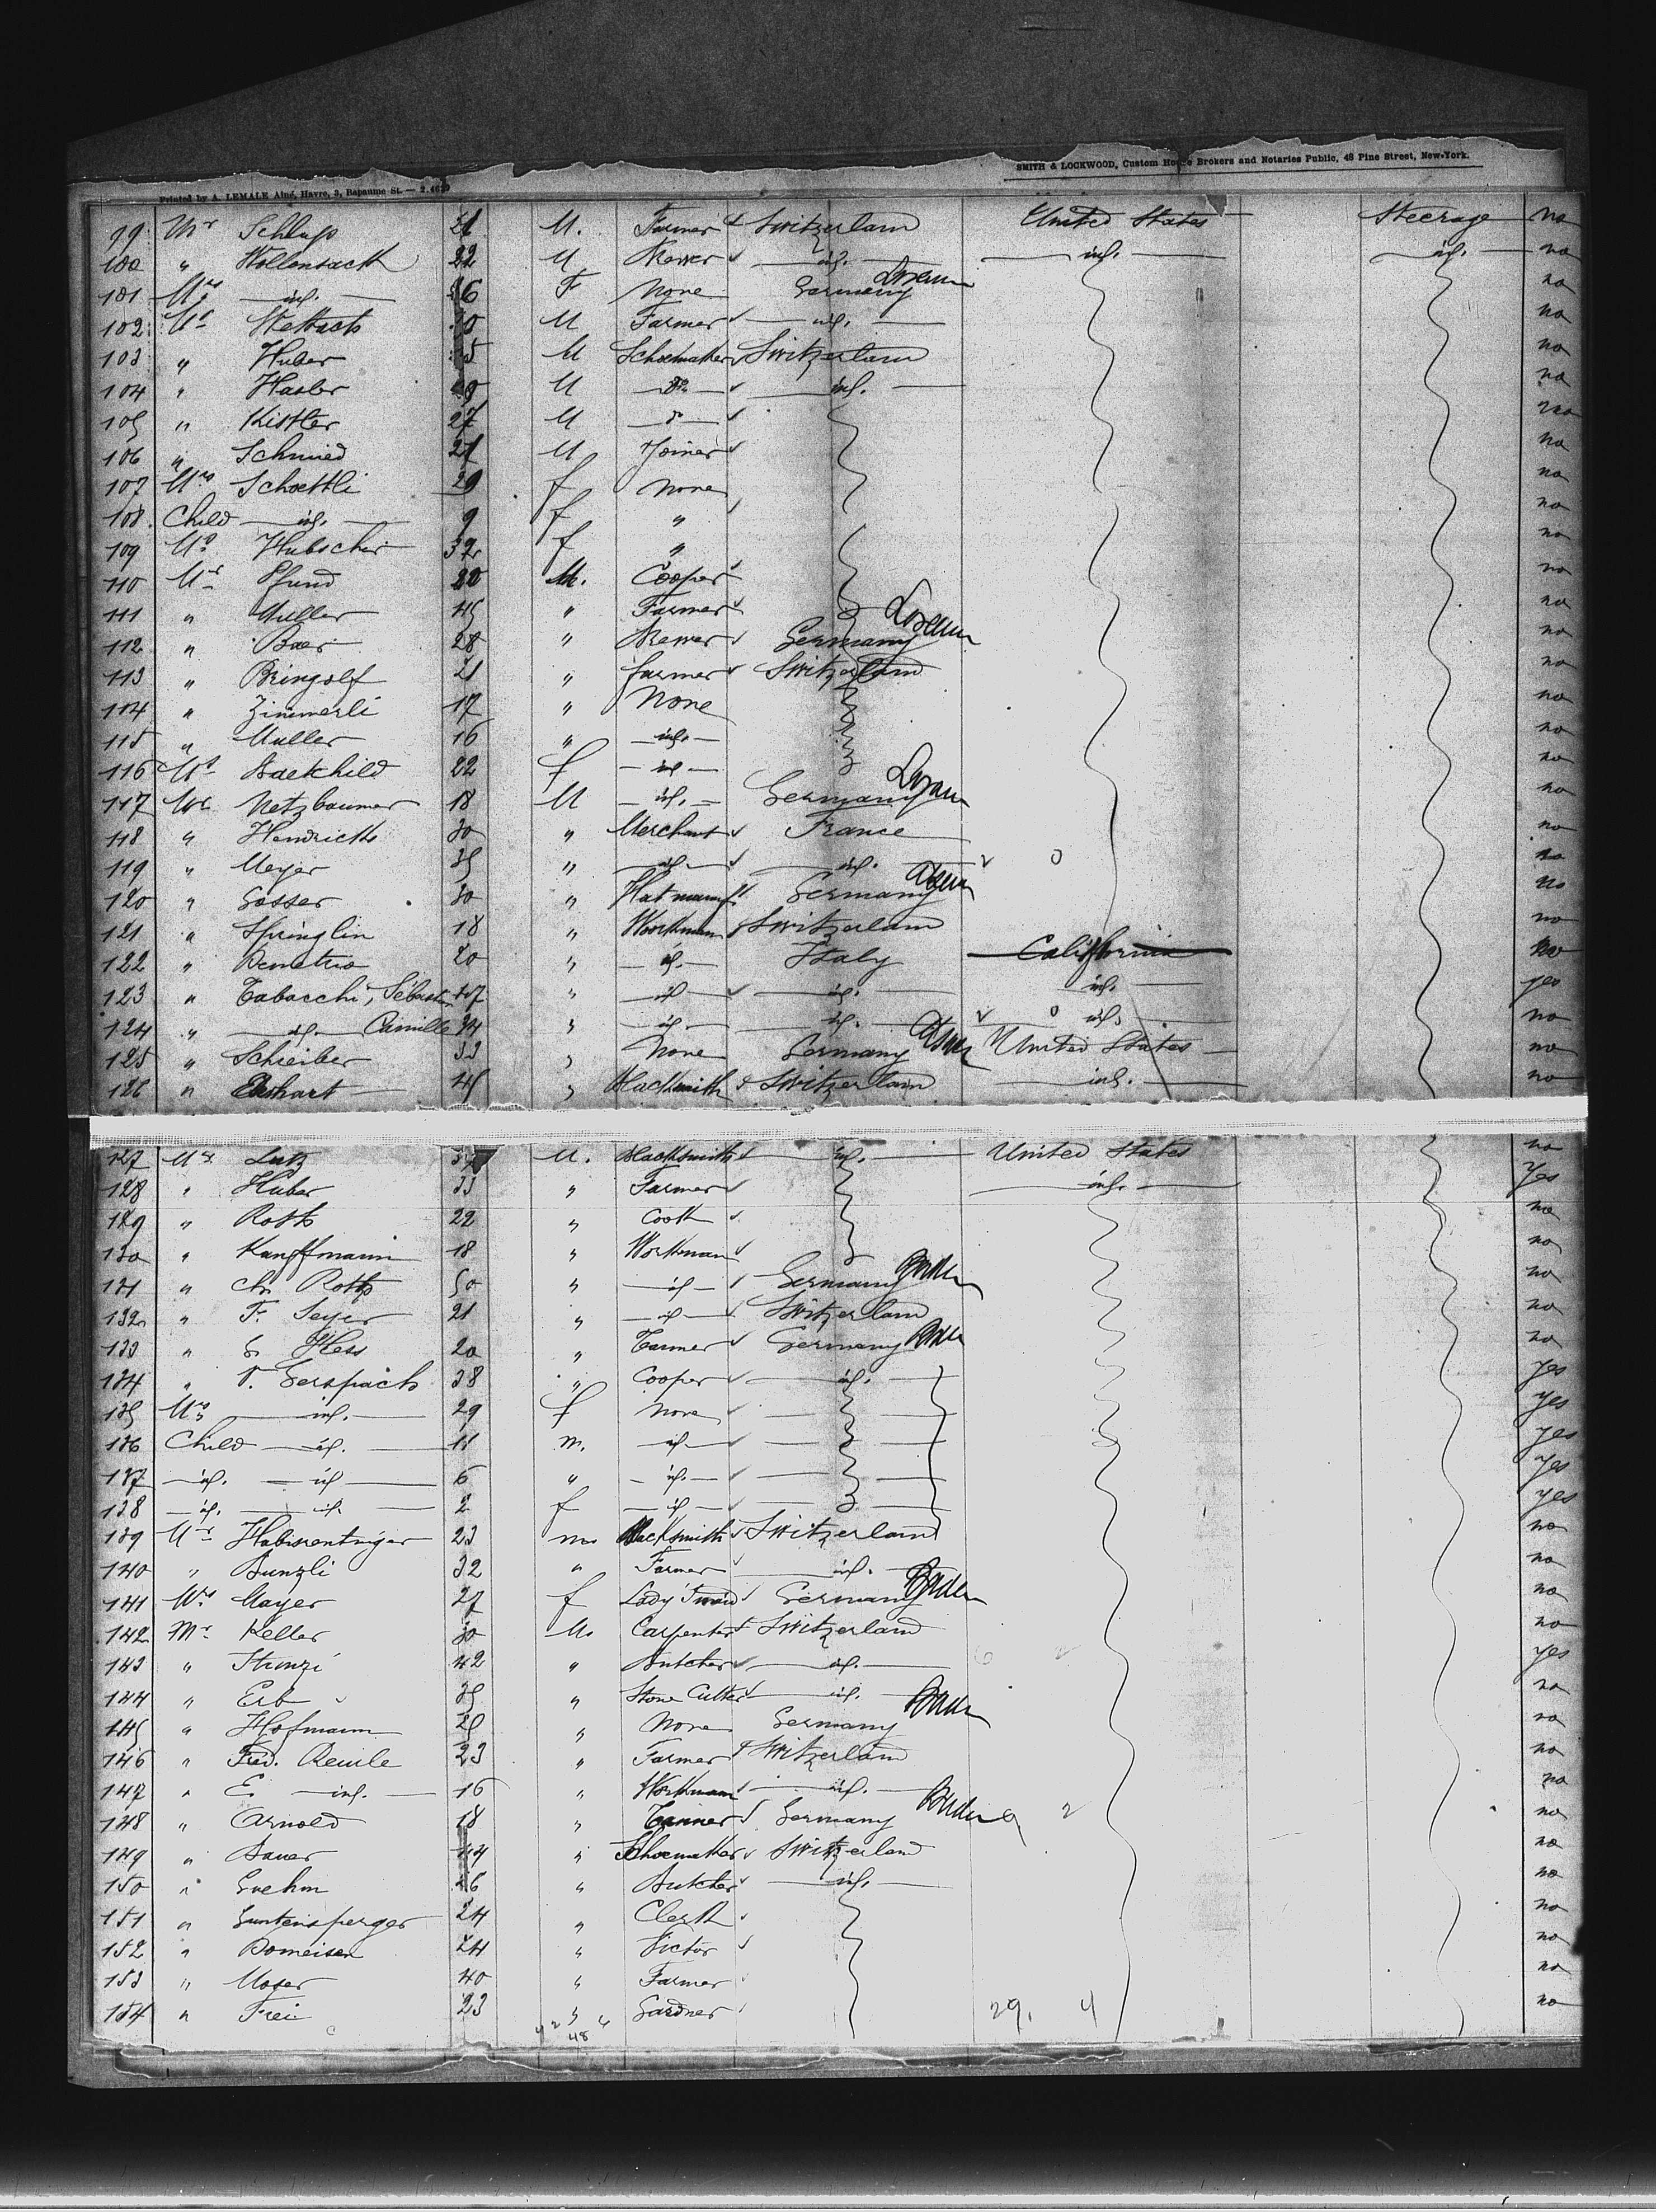 SMITH & LOCKWOOD, Custom House Brokers and Notaries Public, 48 Pine Street, New-York.
Printed by A. LEMALE Aîné, Havre, 3, Bapaume St. —
99 Mr Schlup 21 M. Farmer Switzerland United States Steerage no
100 " Wollensack 22 M Brewer — id. — — id. — — id. — no
101 Mrs — id. — F None Germany no
102 Mr M Farmer — id. — no
103 " Huber M Schoemaker Switzerland no
104 " Hasler M — Do — — id. — no
105 " Kistler 27 M — " — no
106 " Schmied 21 M Joiner no
107 Mrs Schoettli 29 f None no
108 Child — id. — 9 f " no
109 Mrs Hubscher 32 f " no
110 Mr Pfund 20 M. Cooper no
111 " Muller 45 " Farmer no
112 " Baer 28 " Brewer Germany no
113 " Bringolf 21 " farmer Switzerland no
114 " Zimmerli 17 " None no
115 " Muller 16 " — id. — no
116 Mrs Baekhild 22 f — id — no
117 Mr Netzbaumer 18 M — id. — Germany no
118 " Hendricks 30 " Merchant France no
119 " Meyer 35 " — id — — id. — no
120 " Gosser 30 " Hat manuf. Germany no
121 " Springlin 18 " Workman Switzerland no
122 " Demetrio 20 " — id. — Italy California no
123 " Tabacchi, Sébastien 47 " — id — — id. — — id. — yes
124 " — id. — Camille 34 " — id — — id. — — id. — no
125 " Schreiber 33 " None Germany United States no
126 " Ekhart 45 " Blacksmith Switzerland — id. — no
127 Mr Lutz M. Blacksmith — id. — United States no
128 " Huber 33 " Farmer — id. — Yes
129 " Roth 22 " Cook no
130 " Kauffmann 18 " Workman no
131 " Ch. Roth 50 " — id — Germany Baden no
132 " F. Seyer 21 " — id — Switzerland no
133 " G Hess 20 " Tanner Germany Baden no
134 " V. Gerspach 38 " Cooper — id. — yes
135 Mrs — id. — 29 f None yes
136 Child — id. — 11 m. — id — yes
137 — id. — id — 6 " — id. — yes
138 — id. — id. — 2 f — id — yes
139 Mr Habisrentinger 23 m. Blacksmith Switzerland no
140 " Bunzli 32 " Farmer — id. — no
141 Mrs Mayer 27 f Lady's maid Germany Baden no
142 Mr Keller 30 M. Carpenter Switzerland no
143 " Strunzi 42 " Butcher — id. — yes
144 " Erb 35 " Stone Cutter — id. — no
145 " Hofmann 20 " None Germany Baden no
146 " Fred. Remle 23 " Farmer Switzerland no
147 " E — id. — 16 " Workman — id. — no
148 " Arnold 18 " Tanner Germany Baden no
149 " Bauer 44 " Shoemaker Switzerland no
150 " Gnehm 26 " Butcher — id. — no
151 " Guntensperger 24 " Clerk no
152 " Domeisen 24 " Victor no
153 " Moser 40 " Farmer no
154 " Frei 23 " Gardner no
29. 4
48